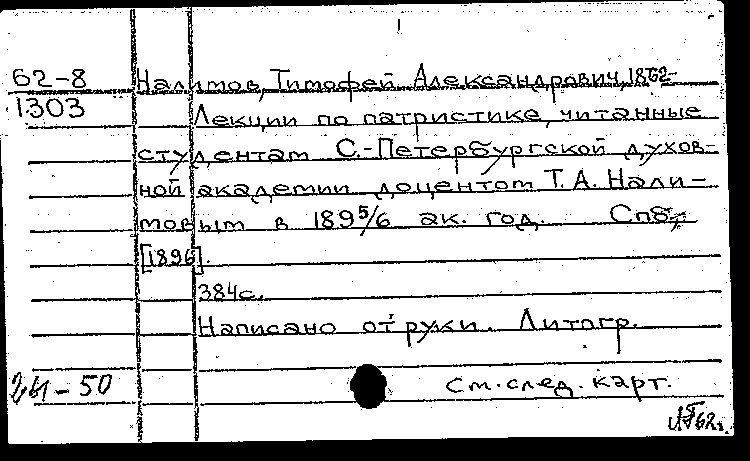 62-8 Налимов, Тимофей Александрович, 1862-
1303 Лекции по патристике, читанные
студентам С.-Петербургской духов-
ной академии доцентом Т.А. Нали-
мовым в 1895/6 ак. год. Спб.,
[1896].
384с.
Написано от руки. Литогр.
См. след. карт.
50
62г.